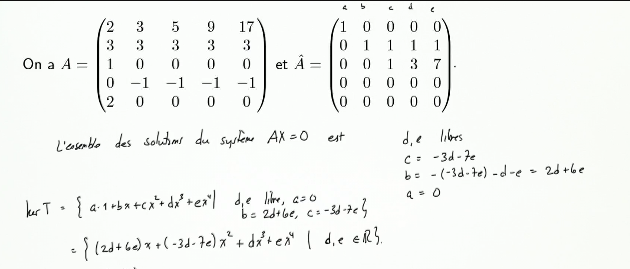 a b c d e
On a A = (2 3 5 9 17; 3 3 3 3 3; 1 0 0 0 0; 0 −1 −1 −1 −1; 2 0 0 0 0) et Â = (1 0 0 0 0; 0 1 1 1 1; 0 0 1 3 7; 0 0 0 0 0; 0 0 0 0 0).
L'ensemble des solutions du système AX=0 est
d, e libres
c = -3d-7e
b = -(-3d-7e)-d-e = 2d+6e
a = 0
ker T = { a·1+bx+cx²+dx³+ex⁴ | d,e libre, a=0
b=2d+6e, c=-3d-7e}
= { (2d+6e)x+(-3d-7e)x²+dx³+ex⁴ | d,e ∈ ℝ}.